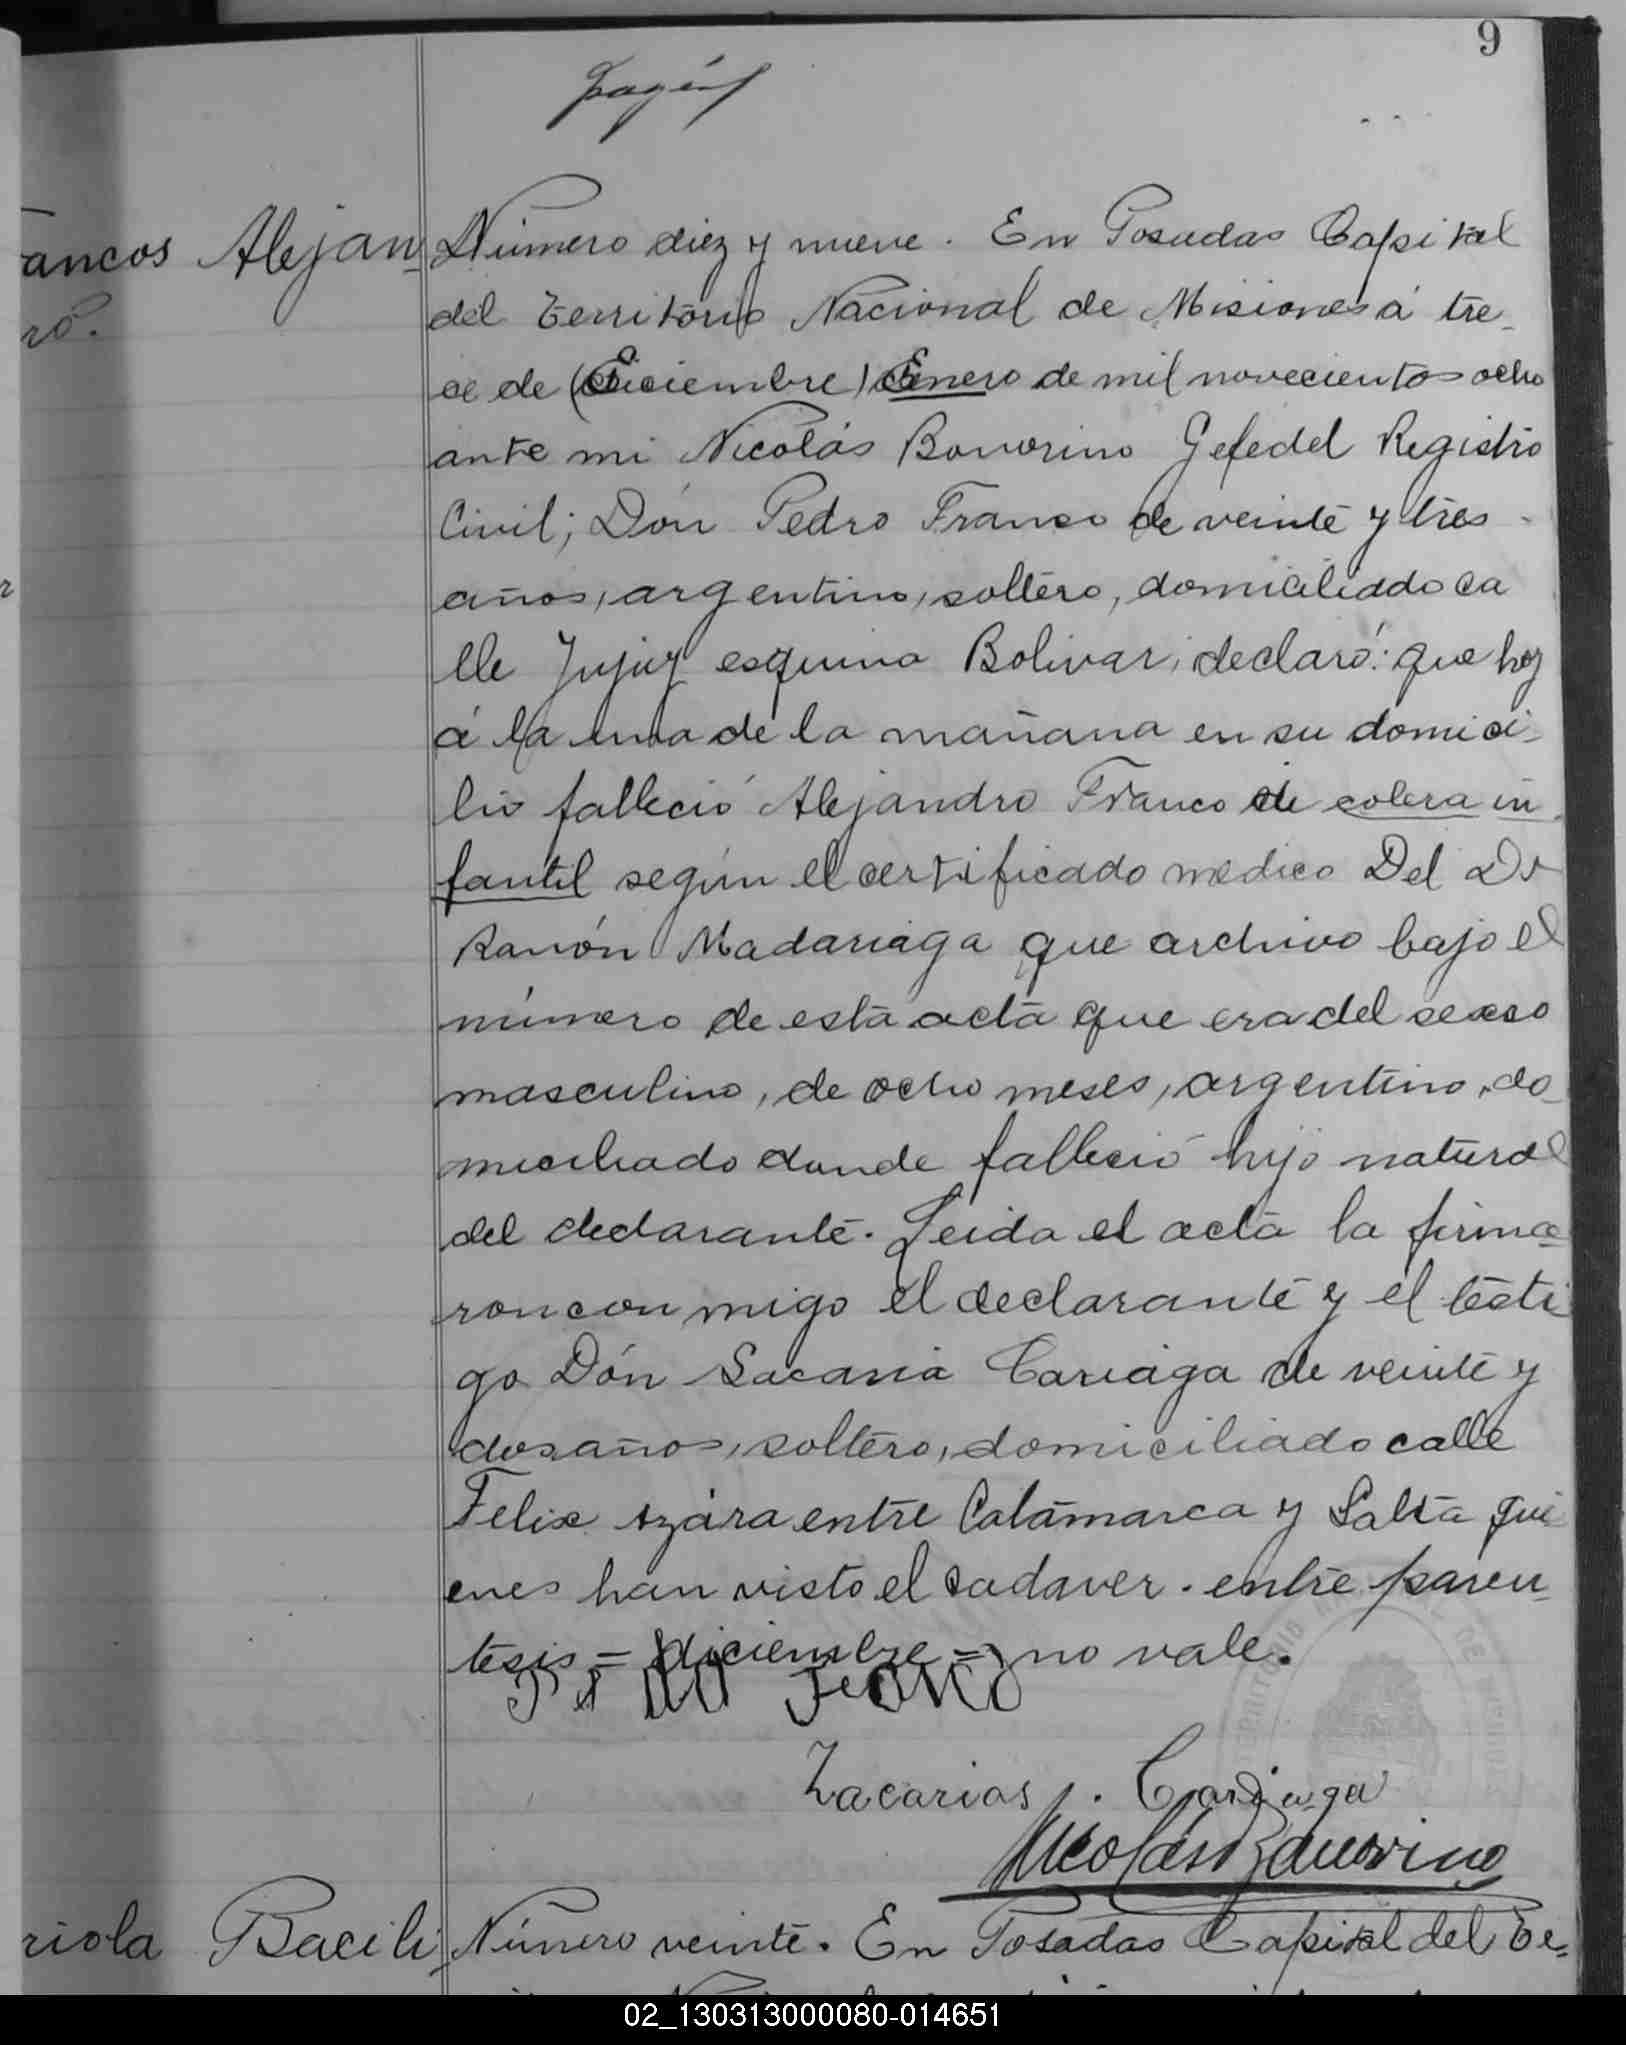 9
ancos Alejan
ro.
Número diez y nueve. En Posadas Capital
del Territorio Nacional de Misiones á tre-
ce de (Diciembre) Enero de mil novecientos ocho
ante mi Nicolás Bonorino Gefe del Registro
Civil; Dón Pedro Franco de veinte y tres
años, argentino, soltero, domiciliado ca
lle Jujuy esquina Bolivar, declaró: que hoy
á la una de la mañana en su domici-
lio falleció Alejandro Franco de colera in
fantil según el certificado medico Del Dr
Ramón Madariaga que archivo bajo el
número de esta acta que era del sexso
masculino, de ocho meses, argentino, do-
miciliado donde falleció hijo natural
del declarante. Leida el acta la firma-
ron con migo el declarante y el testi
go Dón Sacaria Cariaga de veinte y
dos años, soltero, domiciliado calle
Felix Azara entre Catamarca y Salta qui
enes han visto el cadaver. entre paren-
tesis = diciembre = no vale.
Franco
Zacarias Cariaga
Nicolás Bonorino
riola Bacili-
Número veinte. En Posadas Capital del Te-
02_130313000080-014651